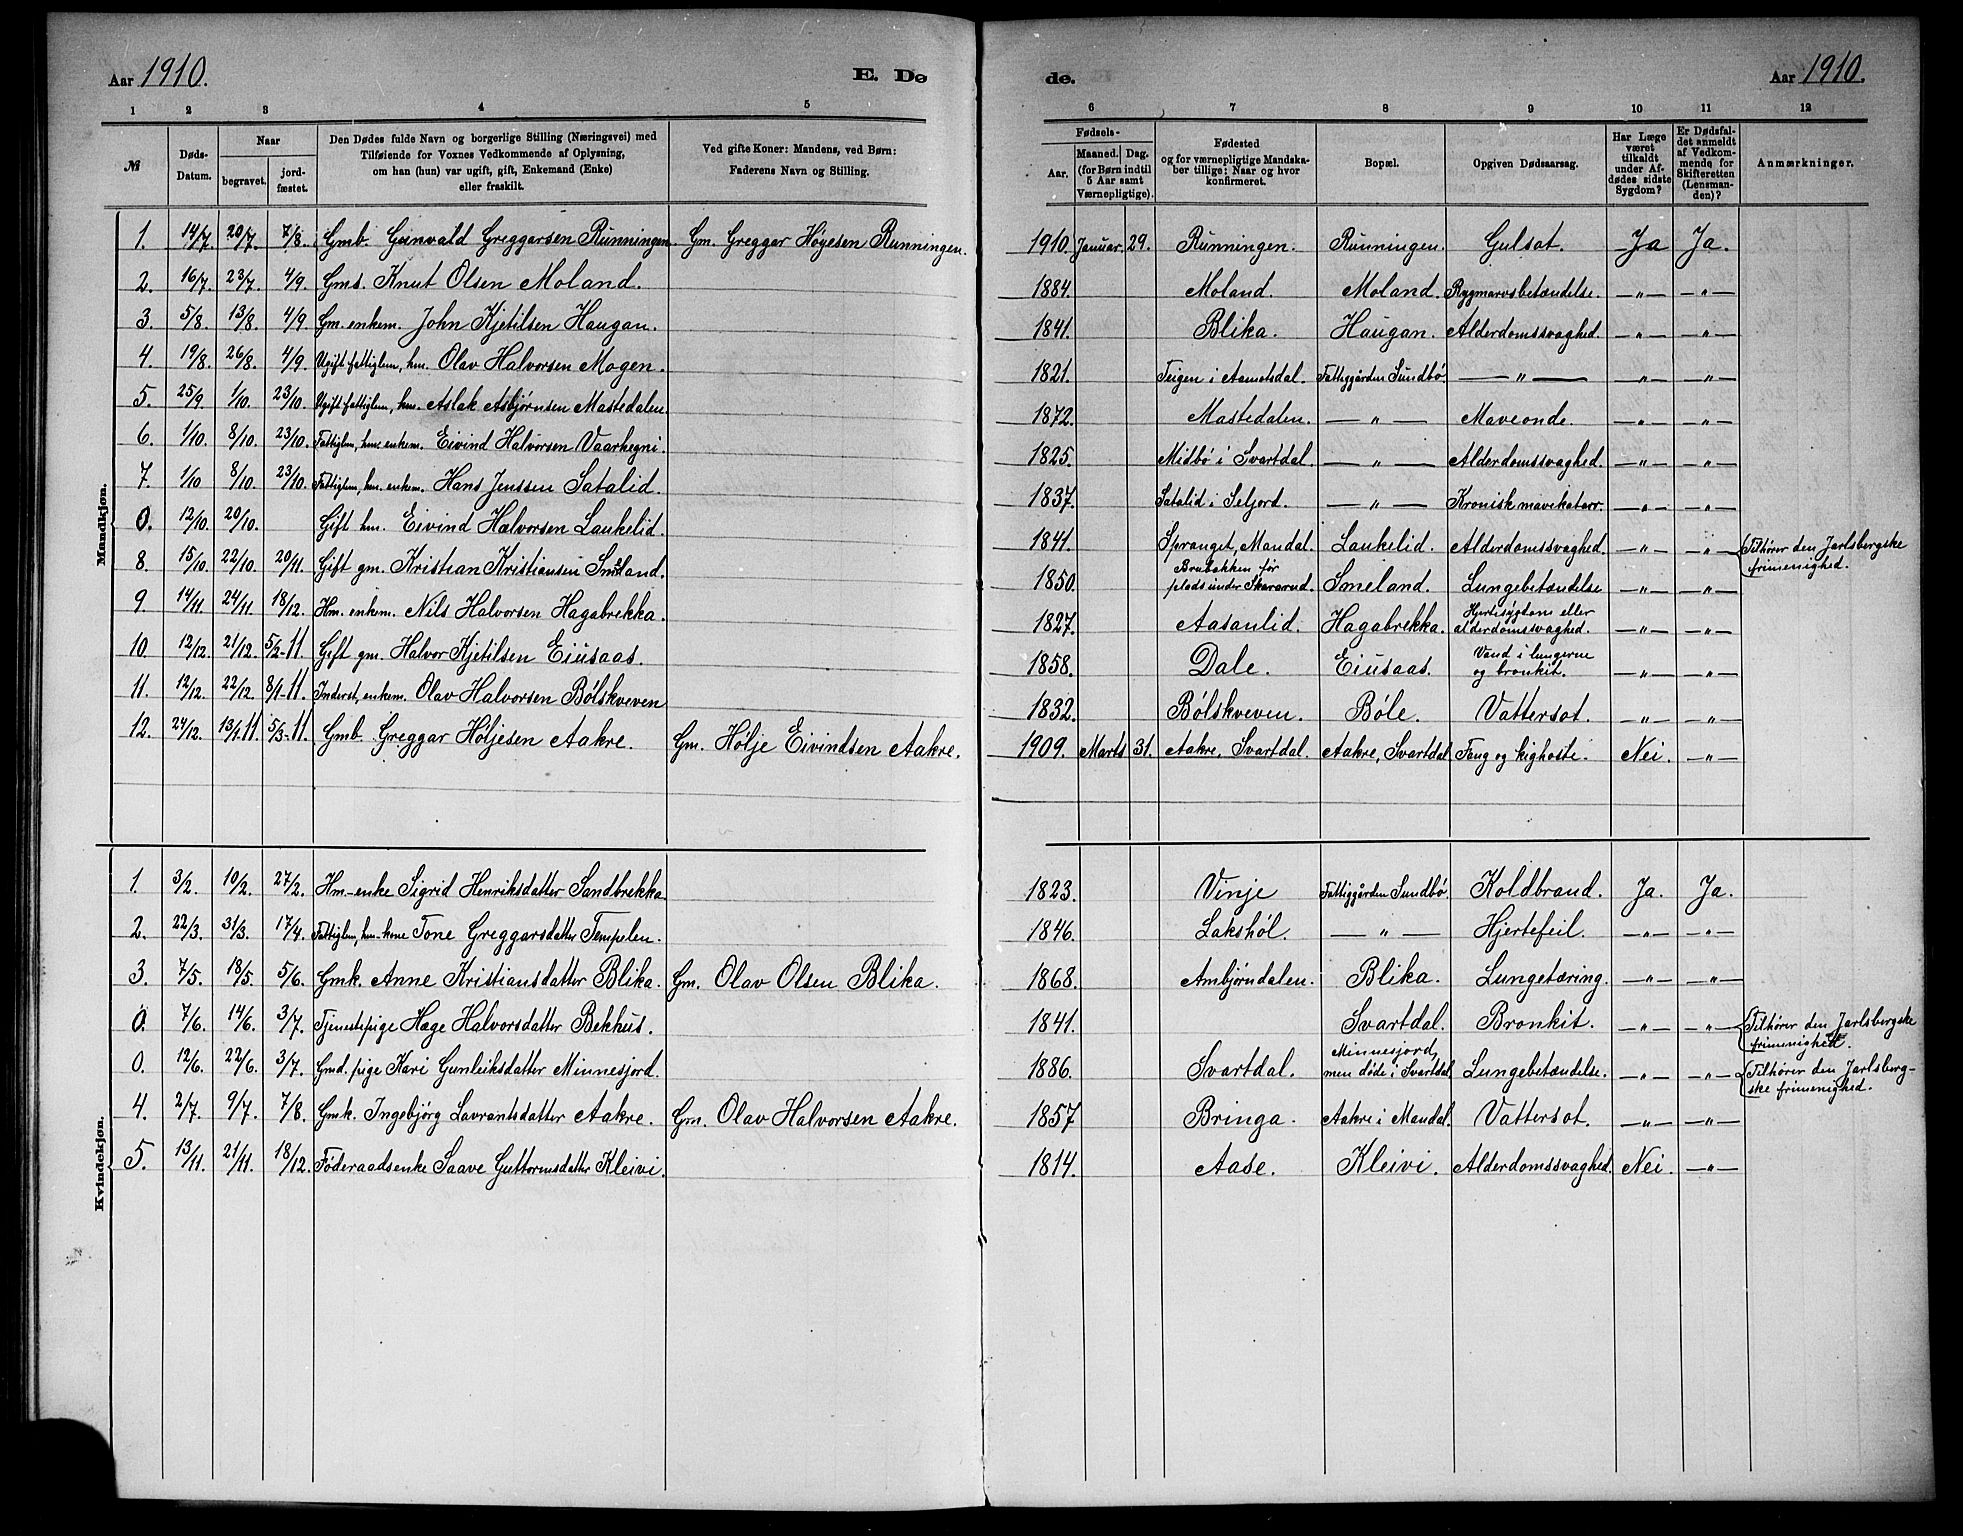 Aar 1910. E. Dø de. Aar 1910.
1 2 3 4 5 6 7 8 9 10 11 12
№ Døds-Datum. Naar begravet. jordfæstet. Den Dødes fulde Navn og borgerlige Stilling (Næringsvei) med Tilføiende for Voxnes Vedkommende af Oplysning, om han (hun) var ugift, gift, Enkemand (Enke) eller fraskilt. Ved gifte Koner: Mandens, ved Børn: Faderens Navn og Stilling. Fødsels- Aar. Maaned. Dag. (for Børn indtil 5 Aar samt Værnepligtige). Fødested og for værnepligtige Mandskaber tillige: Naar og hvor konfirmeret. Bopæl. Opgiven Dødsaarsag. Har Læge været tilkaldt under Afdødes sidste Sygdom? Er Dødsfaldet anmeldt af Vedkommende for Skifteretten (Lensmanden)? Anmærkninger.
Mandkjøn.
1. 14/7. 20/7. 7/8. Gmb. Gunvald Greggarsen Runningen. Gm. Greggar Høyesen Runningen. 1910. Januar. 29. Runningen. Runningen. Gulsot. Ja Ja.
2. 16/7. 23/7. 4/9. Gms. Knut Olsen Moland. 1884. Moland. Moland. Rygmarvsbetændelse. —"— —"—
3. 5/8. 13/8. 4/9 Gm. enkem. John Kjetilsen Haugan. 1841. Blika. Haugan. Alderdomssvaghed. —"— —"—
4. 19/8. 26/8. 4/9 Ugift fattiglem, hm. Olav Halvorsen Mogen. 1821. Teigen i Aamotsdal. Fattiggården Sundbø. —"— —"— —"—
5. 25/9 1/10. 23/10. Ugift fattiglem, hm. Aslak Asbjørnsen Mastedalen. 1872. Mastedalen. —"— Maveonde. —"— —"—
6. 1/10. 8/10 23/10. Fattiglem, hm. enkem. Eivind Halvorsen Vaarhegni. 1825. Midbø i Svartdal. —"— Alderdomssvaghed. —"— —"—
7. 1/10 8/10. 23/10. Fattiglem, hm. enkem. Hans Jenssen Satalid. 1837. Satalid i Seljord. —"— Kronisk mavekatarr. —"— —"—
0. 12/10. 20/10. Gift hm. Eivind Halvorsen Laukelid. 1841. Spranget, Mandal. Laukelid. Alderdomssvaghed. —"— —"— Tilhører den Jarlsbergske frimenighed.
8. 15/10. 22/10. 20/11. Gift gm. Kristian Kristiansen Smeland. 1850. Brubakken før plads under Skararud. Smeland. Lungebetændelse —"— —"—
9. 14/11 24/11 18/12. Hm. enkem. Nils Halvorsen Hagabrekka. 1827. Aasanlid. Hagabrekka. Hjertesygdom eller alderdomssvaghed. —"— —"—
10. 12/12. 21/12. 5/2-11. Gift gm. Halvor Kjetilsen Eiusaas. 1858. Dale. Eiusaas. Vand i lungerne og bronkit. —"— —"—
11. 12/12. 22/12. 8/1-11. Inderst, enkem. Olav Halvorsen Bølskveven 1832. Bølskveven. Bøle. Vattersot. —"— —"—
12. 24/12. 13/1.11. 5/3-11. Gmb. Greggar Høljesen Aakre. Gm. Hølje Eivindsen Aakre. 1909. Marts 31. Aakre, Svartdal. Aakre, Svartdal Tæng og kighoste. Nei. —"—
Kvindekjøn.
1. 3/2. 10/2. 27/2. Hm-enke Sigrid Henriksdatter Sandbrekka. 1823. Vinje Fattiggården Sundbø. Koldbrand. Ja. Ja.
2. 22/3. 31/3. 17/4. Fattiglem, hm-kone Tone Greggarsdatter Tempelen. 1846. Lakshøl. —"— Hjertefeil. —"— —"—
3. 7/5. 18/5 5/6. Gmk. Anne Kristiansdatter Blika. Gm. Olav Olsen Blika. 1868. Ambjørndalen. Blika. Lungetæring. —"— —"—
0. 7/6. 14/6. 3/7. Tjenestepige Hæge Halvorsdatter Bekhus. 1841. Svartdal. Bronkit. —"— —"— Tilhører den Jarlsbergske frimenighed.
0. 12/6. 22/6 3/7. Gmd. pige Kari Gunleiksdatter Minnesjord. 1886. Svartdal. Minnesjord, men døde i Svartdal Lungebetændelse. —"— —"— Tilhører den Jarlsbergske frimenighed.
4. 2/7. 9/7. 7/8. Gmk. Ingebjørg Lavrantsdatter Aakre. Gm. Olav Halvorsen Aakre. 1857 Bringa. Aakre i Mandal. Vattersot. —"— —"—
5. 13/11. 21/11. 18/12. Føderaadsenke Saave Guttormsdatter Kleivi. 1814. Aase. Kleivi. Alderdomssvaghed. Nei. —"—